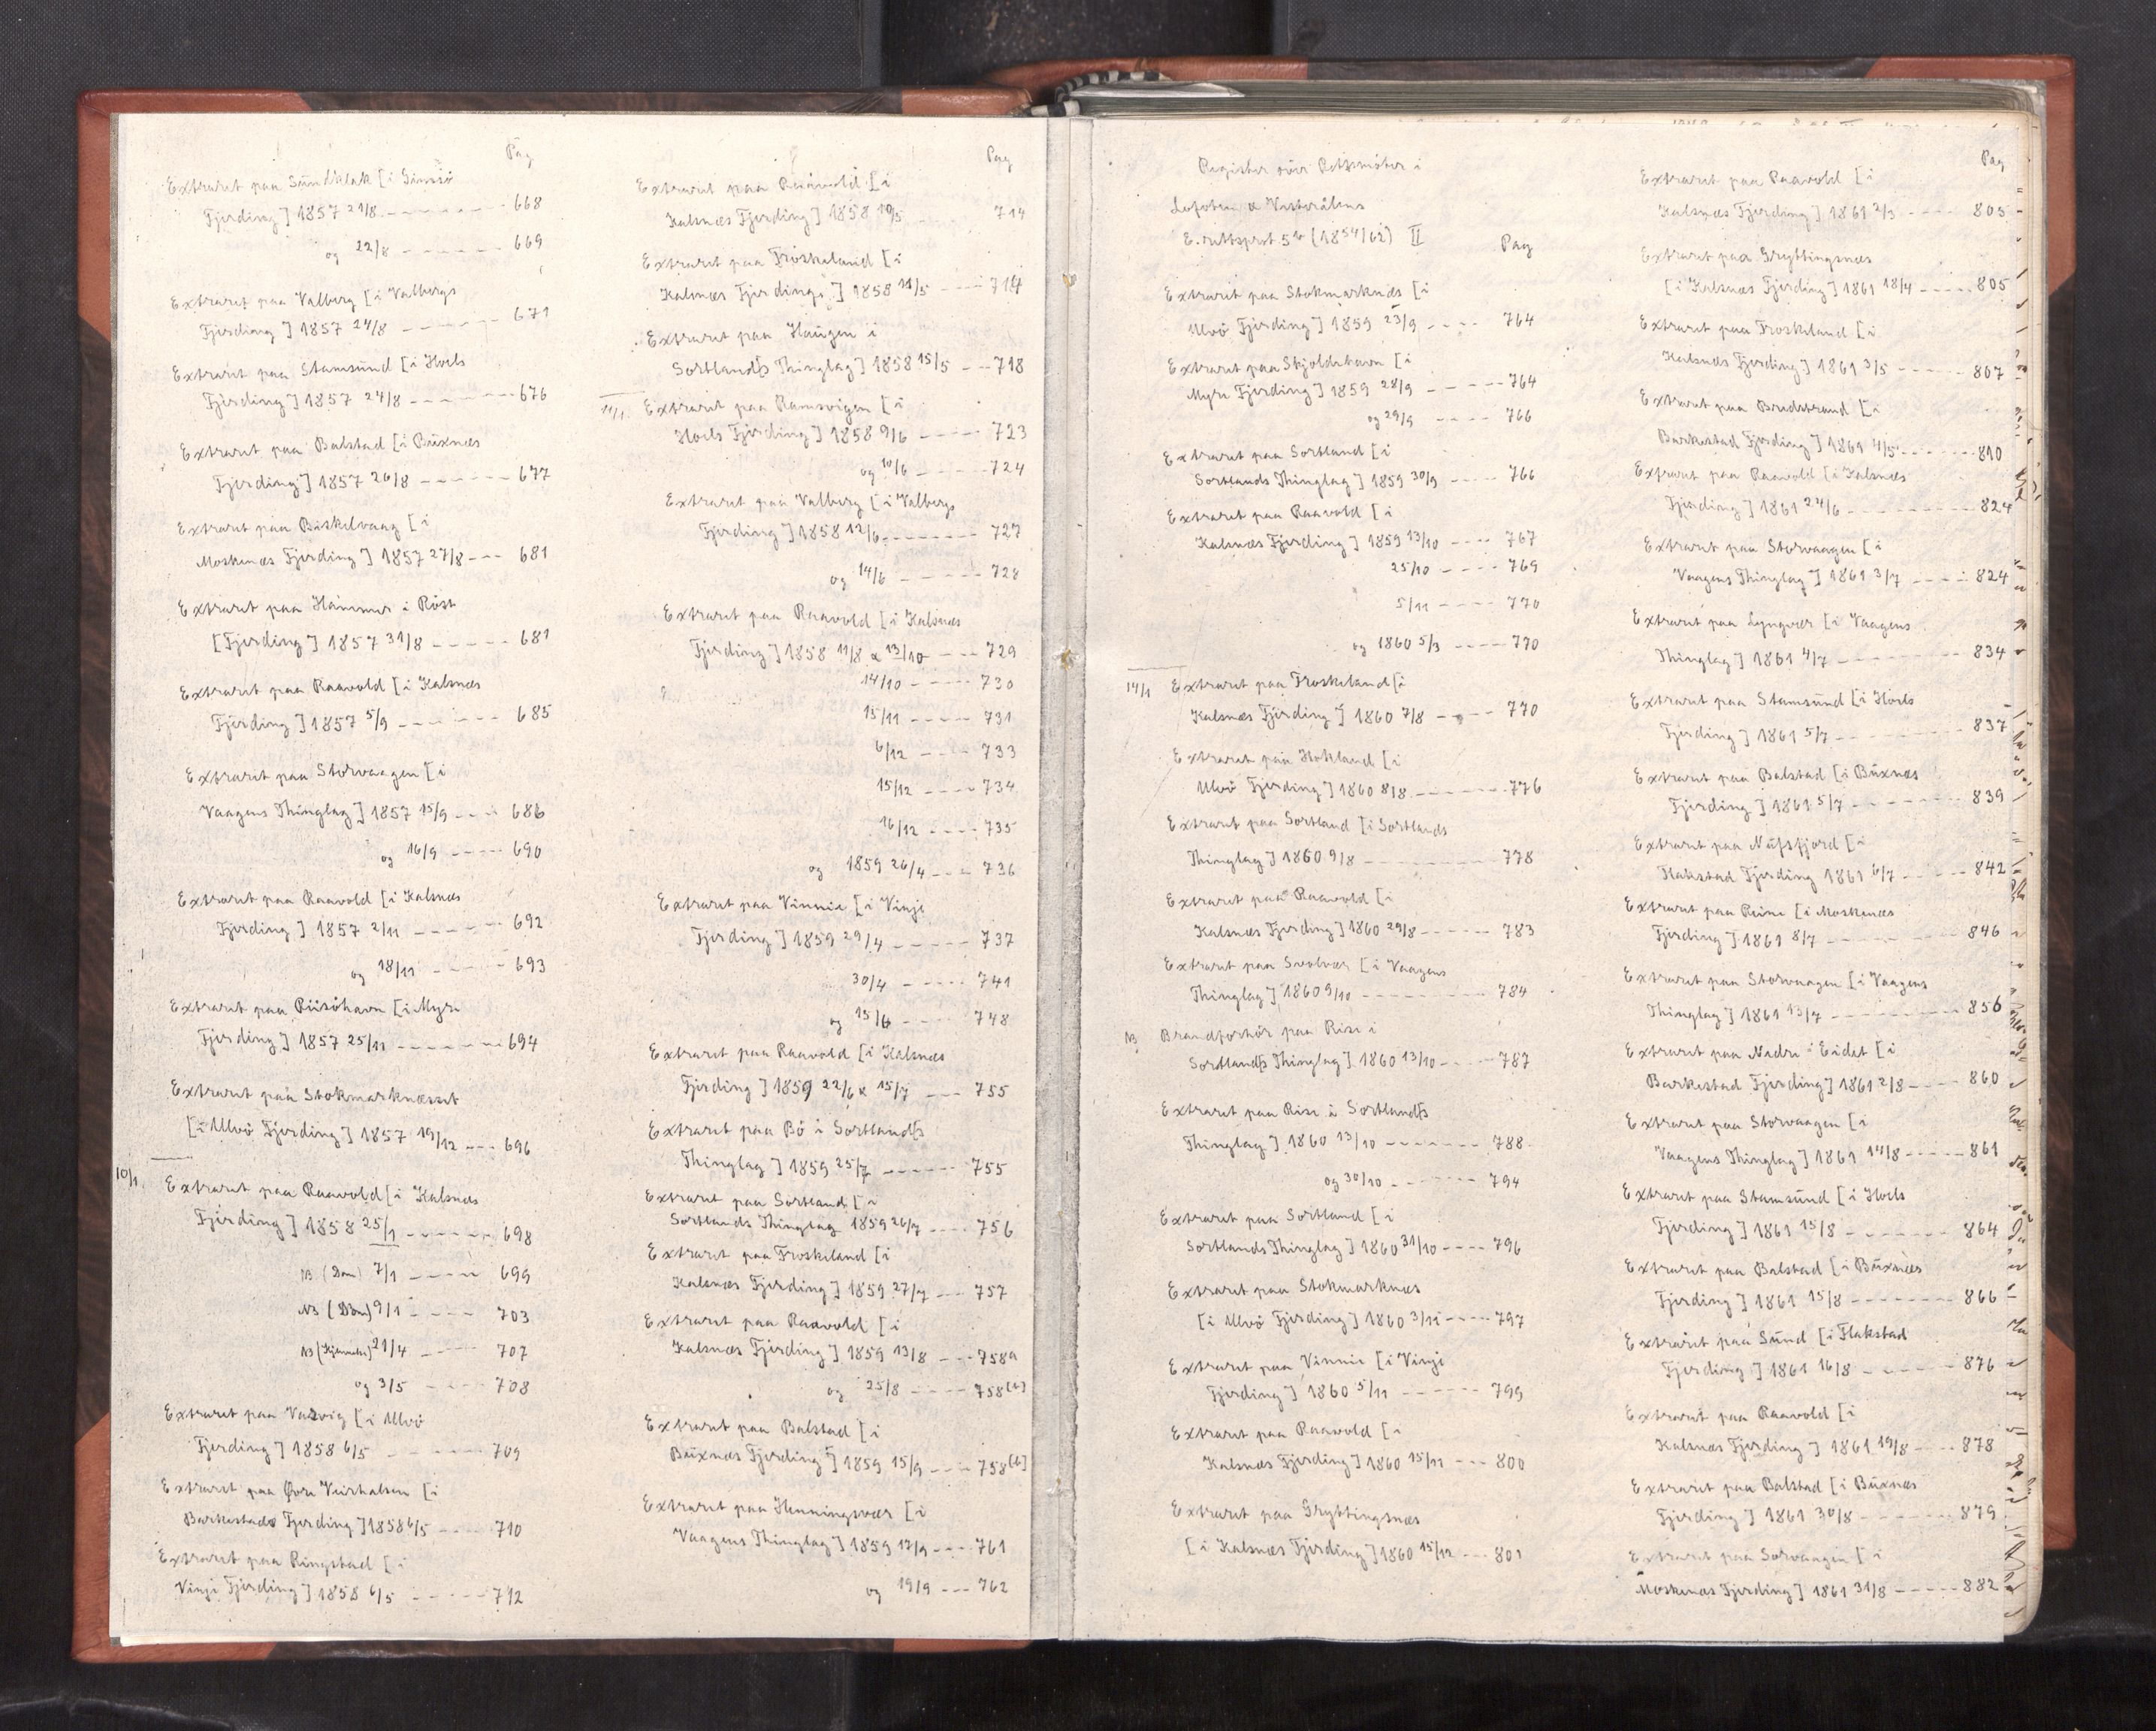 Pag
Extraret paa Sundklak [i Gimsö
Fjerding] 1857 21/8 - - - - - - - 668
og 22/8 - - - - - 669
Extraret paa Valberg [i Valbergs
Fjerding] 1857 24/8 - - - - - - 671
Extraret paa Stamsund [i Hoels
Fjerding] 1857 24/8 - - - - - - 676
Extraret paa Balstad [i Buxnæs
Fjerding] 1857 26/8 - - - - - - 677
Extraret paa [i
Moskenæs Fjerding] 1857 27/8 - - - 681
Extraret paa Hammer i Röst
[Fjerding] 1857 31/8 - - - - - 681
Extraret paa Raavold [i Kalsnæs
Fjerding] 1857 5/9 - - - - - - 685
Extraret paa Storvaagen [i
Vaagens Thinglag] 1857 15/9 - - - 686
og 16/9 - - - - - 690
Extraret paa Raavold [i Kalsnæs
Fjerding] 1857 2/11 - - - - - - 692
og 18/11 - - - - - 693
Extraret paa Riisöhavn [i Myre
Fjerding] 1857 25/11 - - - - - - 694
Extraret paa Stokmarknæsset
[i Ulvö Fjerding] 1857 19/12 - - - 696
10/1 Extraret paa Raavold [i Kalsnæs
Fjerding] 1858 25/1 - - - - - - 698
NB (Dom) 7/1 - - - - 699
NB (Dom) 9/1 - - - - 703
NB 21/4 - - - - 707
og 3/5 - - - - 708
Extraret paa [i Ulvö
Fjerding] 1858 6/5 - - - - - 709
Extraret paa Övre [i
Barkestads Fjerding] 1858 6/5 - - - - 710
Extraret paa Ringstad [i
Vinje Fjerding] 1858 6/5 - - - - - 712
Pag
Extraret paa Raavold [i
Kalsnæs Fjerding] 1858 10/5 714
Extraret paa Froskeland [i
Kalsnæs Fjerding] 1858 11/5 - - - - 714
Extraret paa Haugen i
Sortland[s Thinglag] 1858 15/5 - - - 718
11/1 Extraret paa Ramsvigen [i
Hoels Fjerding] 1858 9/6 - - - - - 723
og 10/6 - - - - - 724
Extraret paa Valberg [i Valbergs
Fjerding] 1858 12/6 - - - - - - - 727
og 14/6 - - - - - - 728
Extraret paa Raavold [i Kalsnæs
Fjerding] 1858 11/8 & 13/10 - - - 729
14/10 - - - - - 730
15/11 - - - - - 731
6/12 - - - - 733
15/12 - - - - 734
16/12 - - - - 735
og 1859 26/4 - - - 736
Extraret paa Vinnie [i Vinje
Fjerding] 1859 29/4 - - - - - - 737
30/4 - - - - - 741
og 15/6 - - - - 748
Extraret paa Raavold [i Kalsnæs
Fjerding] 1859 22/6 & 15/7 - - - 755
Extraret paa Bö i Sortland[s
Thinglag] 1859 25/7 - - - - - - 755
Extraret paa Sortland [i
Sortlands Thinglag 1859 26/7 - - - - 756
Extraret paa Froskeland [i
Kalsnæs Fjerding] 1859 27/7 - - - 757
Extraret paa Raavold [i
Kalsnæs Fjerding] 1859 13/8 - - - 758a
og 25/8 - - - - 758[b]
Extraret paa Balstad [i
Buxnæs Fjerding] 1859 15/9 - - - 758[b]
Extraret paa Henningsvær [i
Vaagens Thinglag] 1859 17/9 - - - - 761
og 19/9 - - - 762
Register över Rettsmöter i
Lofoten & Vesterålens
E.rettsprot. 5b (1854/62) II Pag
Extraret paa Stokmarknæs [i
Ulvö Fjerding] 1859 23/9 - - - - 764
Extraret paa Skjoldehavn [i
Myre Fjerding] 1859 28/9 - - - - - 764
og 29/9 - - - - 766
Extraret paa Sortland [i
Sortlands Thinglag] 1859 30/9 - - - - 766
Extraret paa Raavold [i
Kalsnæs Fjerding] 1859 13/10 - - - - 767
25/10 - - - - 769
5/11 - - - - 770
og 1860 5/3 - - - - - 770
14/1 Extraret paa Froskeland [i
Kalsnæs Fjerding] 1860 7/8 - - - - 770
Extraret paa Hokland [i
Ulvö Fjerding] 1860 8/8 - - - - - - - 776
Extraret paa Sortland [i Sortlands
Thinglag] 1860 9/8 - - - - - - - - 778
Extraret paa Raavold [i
Kalsnæs Fjerding] 1860 29/8 - - - - - 783
Extraret paa Svolvær [i Vaagens
Thinglag] 1860 9/10 - - - - - - - - 784
NB Brandforhör paa Rise i
Sortland[s Thinglag] 1860 13/10 - - - - 787
Extraret paa Rise i Sortland[s
Thinglag] 1860 13/10 - - - - - - 788
og 30/10 - - - - - - 794
Extraret paa Sortland [i
Sortlands Thinglag] 1860 31/10 - - - - 796
Extraret paa Stokmarknæs
[i Ulvö Fjerding] 1860 3/11 - - - - 797
Extraret paa Vinnie [i Vinje
Fjerding] 1860 5/11 - - - - - - 799
Extraret paa Raavold [i
Kalsnæs Fjerding] 1860 15/11 - - - 800
Extraret paa Gryttingsnæs
[i Kalsnæs Fjerding] 1860 15/12 - - - 801
Pag
Extraret paa Raavold [i
Kalsnæs Fjerding] 1861 2/3 - - - - 805
Extraret paa Gryttingsnæs
[i Kalsnæs Fjerding] 1861 18/4 - - - - - 805
Extraret paa Froskeland [i
Kalsnæs Fjerding] 1861 3/5 - - - - - 807
Extraret paa Bredstrand [i
Barkestad Fjerding] 1861 4/5 - - - - - - 810
Extraret paa Raavold [i Kalsnæs
Fjerding] 1861 24/6 - - - - - - - - 824
Extraret paa Storvaagen [i
Vaagens Thinglag] 1861 3/7 - - - - 824
Extraret paa Lyngvær [i Vaagens
Thinglag] 1861 4/7 - - - - - - - - 834
Extraret paa Stamsund [i Hoels
Fjerding] 1861 5/7 - - - - - - - - 837
Extraret paa Balstad [i Buxnæs
Fjerding] 1861 5/7 - - - - - - - 839
Extraret paa Nufsfjord [i
Flakstad Fjerding 1861 6/7 - - - - - 842
Extraret paa Reine [i Moskenæs
Fjerding] 1861 8/7 - - - - - - - - 846
Extraret paa Storvaagen [i Vaagens
Thinglag] 1861 13/7 - - - - - - - - 856
Extraret paa Nedre Eidet [i
Barkestad Fjerding] 1861 2/8 - - - - 860
Extraret paa Storvaagen [i
Vaagens Thinglag] 1861 14/8 - - - - - 861
Extraret paa Stamsund [i Hoels
Fjerding] 1861 15/8 - - - - - - - 864
Extraret paa Balstad [i Buxnæs
Fjerding] 1861 15/8 - - - - - - - 866
Extraret paa Sund [i Flakstad
Fjerding] 1861 16/8 - - - - - - 876
Extraret paa Raavold [i
Kalsnæs Fjerding] 1861 19/8 - - - - 878
Extraret paa Balstad [i Buxnæs
Fjerding] 1861 30/8 - - - - - - - 879
Extraret paa Sorvaagen [i
Moskenæs Fjerding] 1861 31/8 - - - - - 882